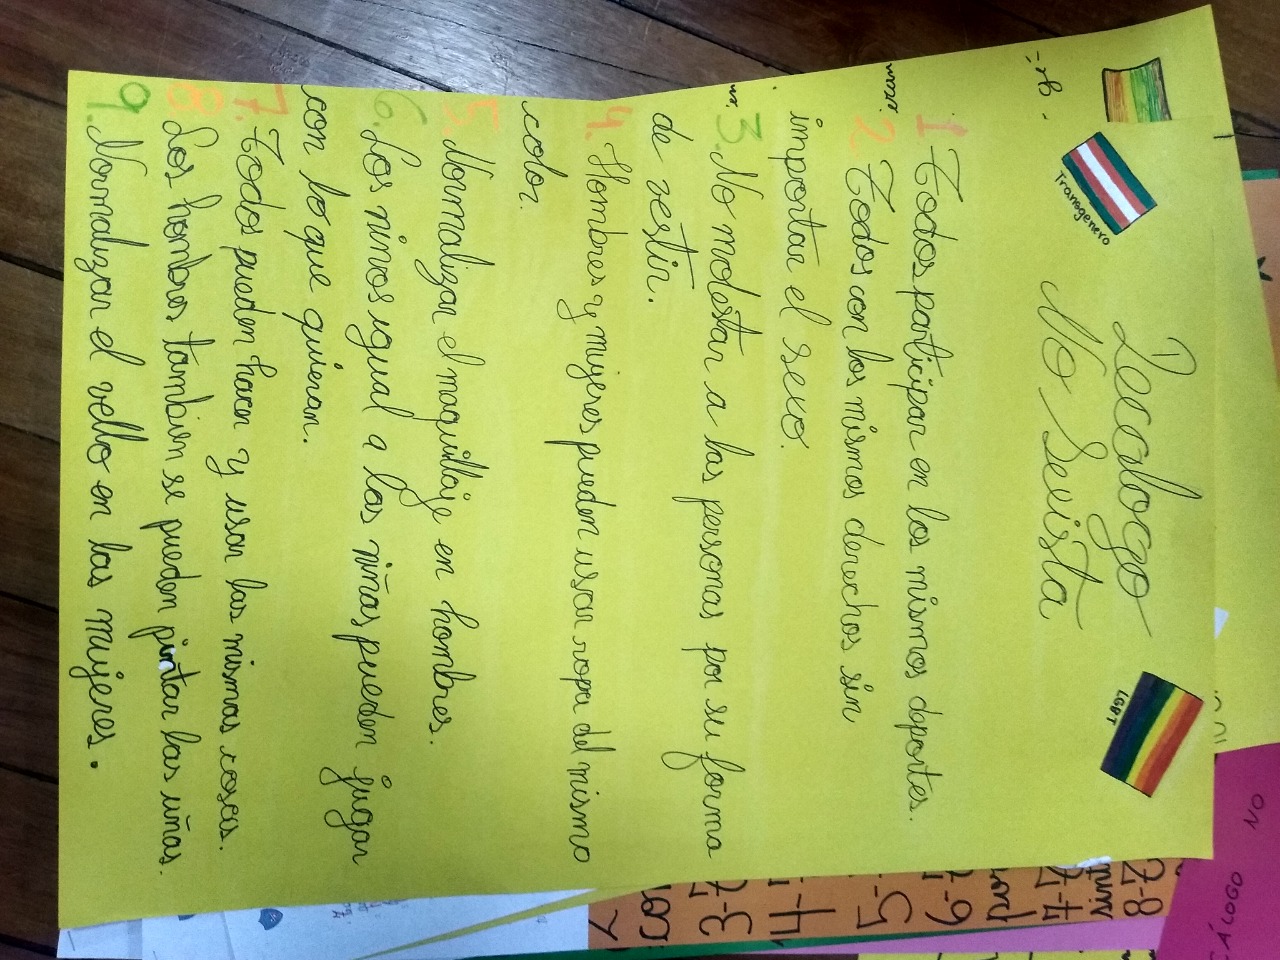 Decalogo
No Sexista
Transgenero
LGBT
1. Todos participar en los mismos deportes.
2. Todos con los mismos derechos sin
importar el sexo.
3. No molestar a las personas por su forma
de vestir.
4. Hombres y mujeres pueden usar ropa del mismo
color.
5. Normalizar el maquillaje en hombres.
6. Los ninos igual a las niñas pueden jugar
con lo que quieran.
7. Todos pueden hacer y usar las mismas cosas.
8. Los hombres tambien se pueden pintar las uñas.
9. Normalizar el vello en las mujeres.
CÁLOGO NO
3-
4-
5-
6-
7-
8-